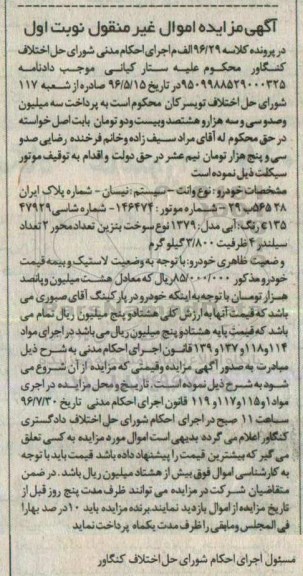 آگهی مزایده اموال غیر منقول نوبت اول
در پرونده کلاسه ۹۶/۲۹ الف م اجرای احکام مدنی شورای حل اختلاف
کنگاور محکوم علیه ستار کیانی موجب دادنامه
۹۵۰۹۹۸۸۵۲۹۰۰۰۳۲۵ در تاریخ ۹۶/۵/۱۵ صادره از شعبه ۱۱۷
شورای حل اختلاف تویسرکان محکوم است به پرداخت سه میلیون
وصدو سی و سه هزارو هشتصد وبیست ودو تومان بابت اصل خواسته
در حق محکوم له آقای مراد سیف زاده وخانم فرخنده رضایی صدو
سی و پنج هزار تومان نیم عشر در حق دولت واقدام به توقیف موتور
سیکلت ذیل نموده است
مشخصات خودرو: نوع وانت – سیستم: نیسان – شماره پلاک ایران
۲۸ ۵۶۵ب۲۹ – شماره موتور: ۱۴۶۴۷۴ – شماره شاسی ۴۷۹۲۹
۱۳۵e رنگ: آبی مدل: ۱۳۷۹ نوع سوخت بنزین تعداد محور ۲ تعداد
سیلندر ۴ ظرفیت ۳/۸۰۰ کیلو گرم
وضعیت ظاهری خودرو: با توجه به وضعیت لاستیک و بیمه قیمت
خودرو مذکور ۸۵/۰۰۰/۰۰۰ ریال که معادل هشت میلیون وپانصد
هزار تومسان با توجه به اینکه خودرو در پارکینگ آقای صبوری می
باشد که قیمت آنها به ارزش کلی هشتادو پنج میلیون ریال تمام می
باشد که قیمت پایه هشتادو پنج میلیون ریال می باشد در اجرای مواد
۱۱۴و۱۱۸و ۱۳۷و ۱۳۹ قانون اجرای احکام مدنی به شرح ذیل
مبادرت به صدور آگهی مزایده وقیمتی که مزایده از آن شروع می
شود به شرح ذیل نموده است. تاریخ و محل مزایده در اجری
مواد۱و۱۱۵و۱۱۷و ۱۱۹ قانون اجرای احکام مدنی تاریخ ۹۶/۷/۳۰
ساعت ۱۱ صبح در اجرای احکام شورای حل اختلاف دادگستری
کنگاور اعلام می گردد بدیهی است اموال مورد مزایده به کسی تعلق
می گیر که بیشترین قیمت را پیشنهاد داده باشد قیمت باید با توجه
به کارشناسی اموال فوق بیش از هشتاد میلیون ریال باشد . در ضمن
متقاضیان شرکت در مزایده می توانند ظرف مدت پنج روز قبل از
تاریخ مزایده از اموال بازدید نمایند.برنده مزایده باید ۱۰ در صد بهارا
فی المجلس ومابقی را ظرف مدت یکماه پرداخت نماید
مسئول اجرای احکام شورای حل اختلاف کنگاور